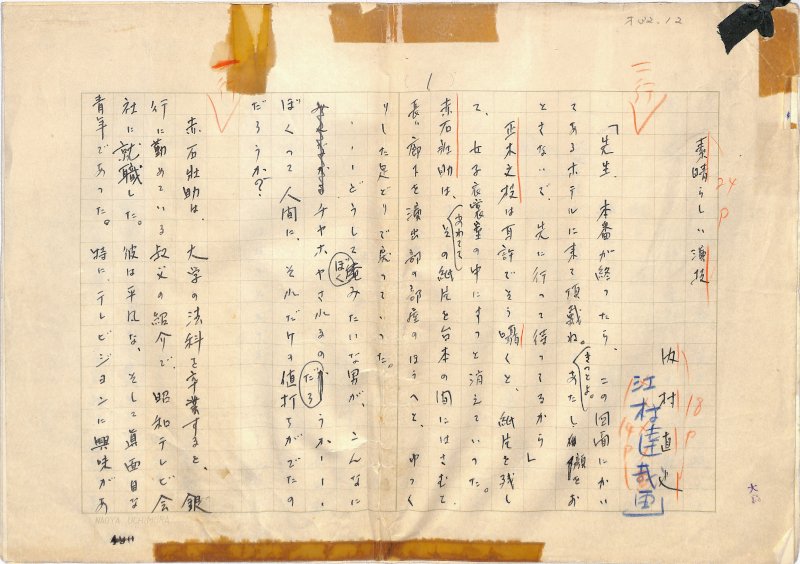 才32.12
1
三行
素晴らしい演技
24
P
内村直也
18
P
江村達哉画
14
P
「先生 本番が終ったら、この図面にかい
てあるホテルに来て頂戴ね。きっとよ。あたし、顔をお
とさないで、先に行って待ってるから」
正木文枝は耳許でそう囁くと、紙片を残し
て、女子衣裳室の中にすっと消えていった。
赤石壯助は、あわててその紙片を台本の間にはさむと、
長い廊下を演出部の部屋のほうへと、ゆっく
りした足どりで戻っていった。
……どうしてぼくみたいな男が、こんなに
チヤホヤされるのだろうか……
ぼくって人間に、それだけの値打ちがでたの
だろうか？
三行
赤石壯助は、大学の法科を卒業すると、銀
行に勤めている叔父の紹介で、昭和テレビ会
社に就職した。彼は平凡な、そして真面目な
青年であった。特に、テレビジョンに興味があ
NAOYA UCHIMURA